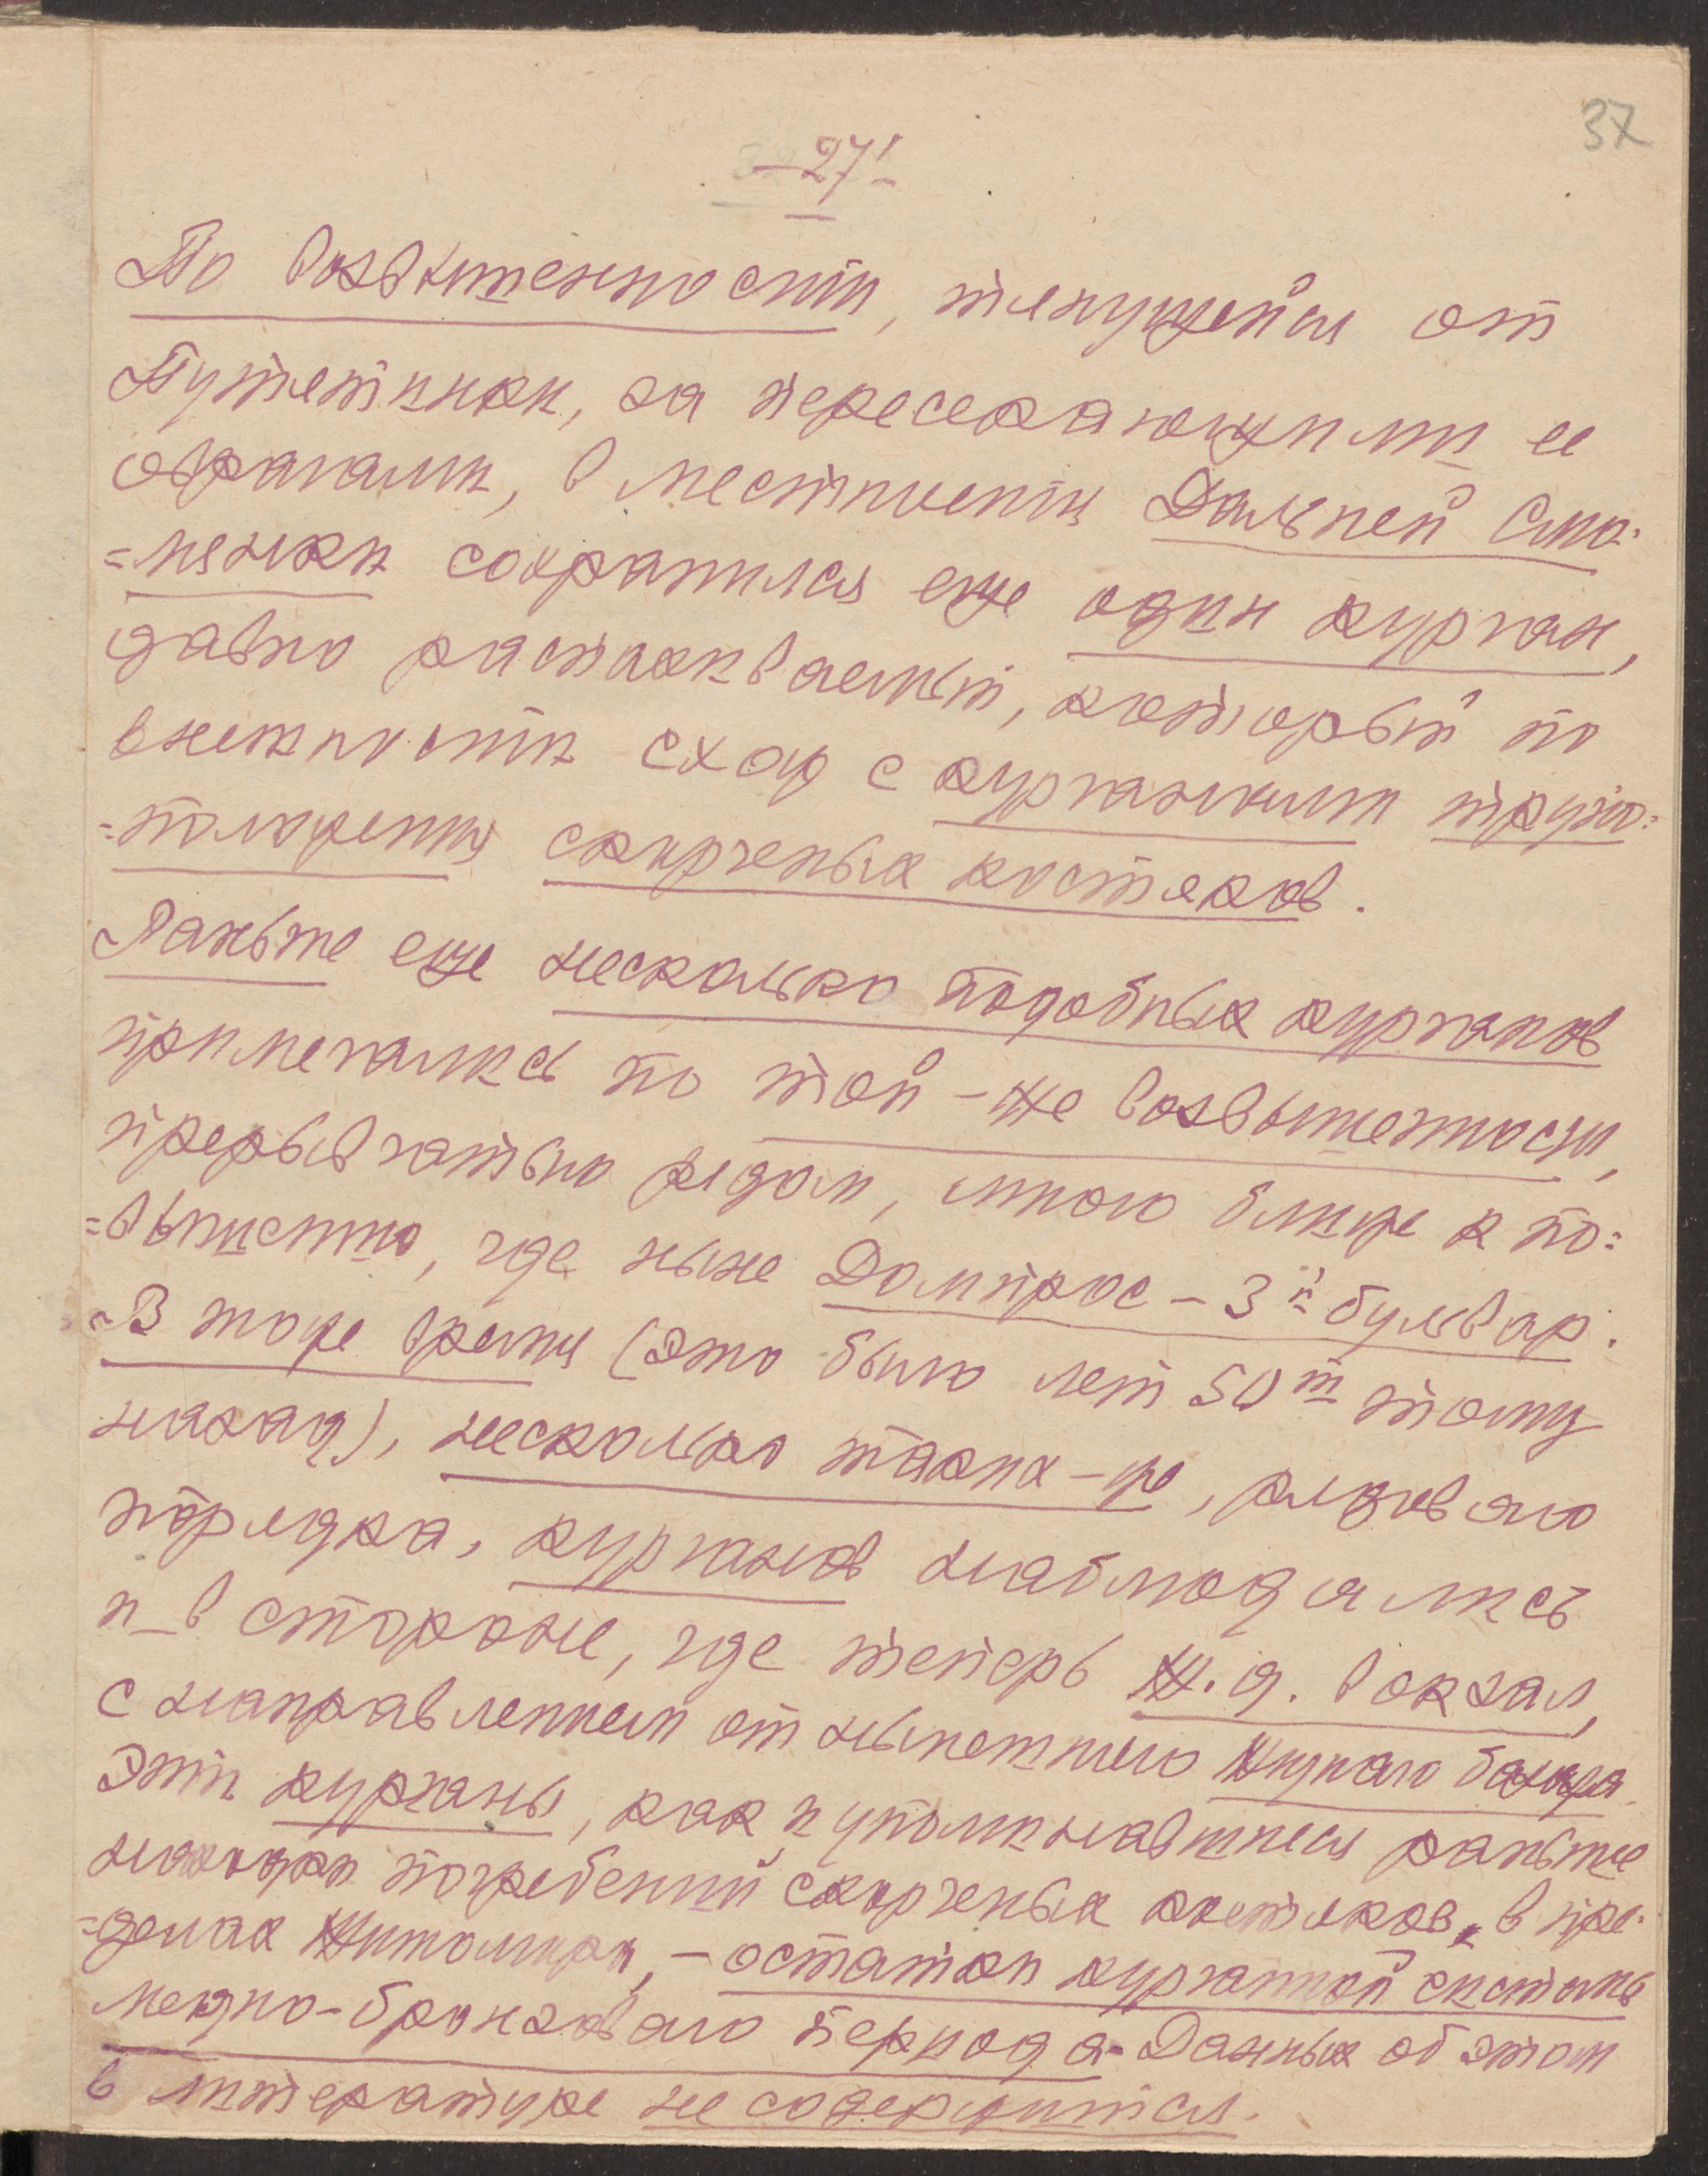 37
-27-
По возвышенности, тянущейся от
Путятинки, за пересекающими ее
оврагами, в местности Дальней Смо-
=лянки сохранился еще один курган,
давно распахиваемый, который по
внешности сход с курганами трупо=
=положения скорченных костяков.
Раньше еще несколько подобных курганов
примечались по той-же возвышенности,
прерывчатым рядом, много ближе к
где ныне Допрос - 3й бульвар.
В тоже время (это было лет 50т тому
назад), несколько таких-же, рядового
порядка, курганов наблюдались
и в стороне, где теперь ж.д. вокзал,
с направлением от нынешнего базара
Эти курганы, как и упоминавшиеся раньше
находки погребений скорченых костяков, в пре-
=делах Житомира, - остатки курганной системы
медно-бронзоваго периода. Данных об этом
в литературе не содержится.